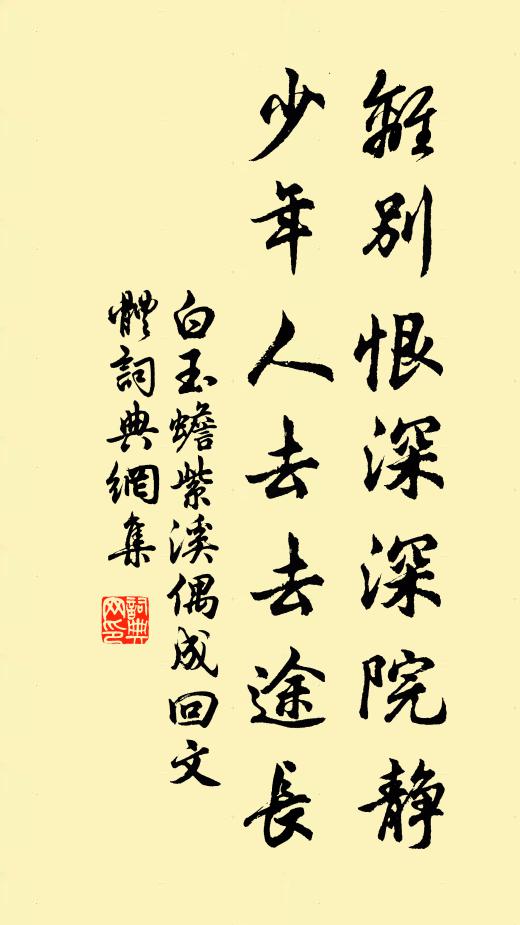 離別恨深深院静
少年人去去途長
白玉蟾紫溪偶成回文
體詞典網集
詞典网印